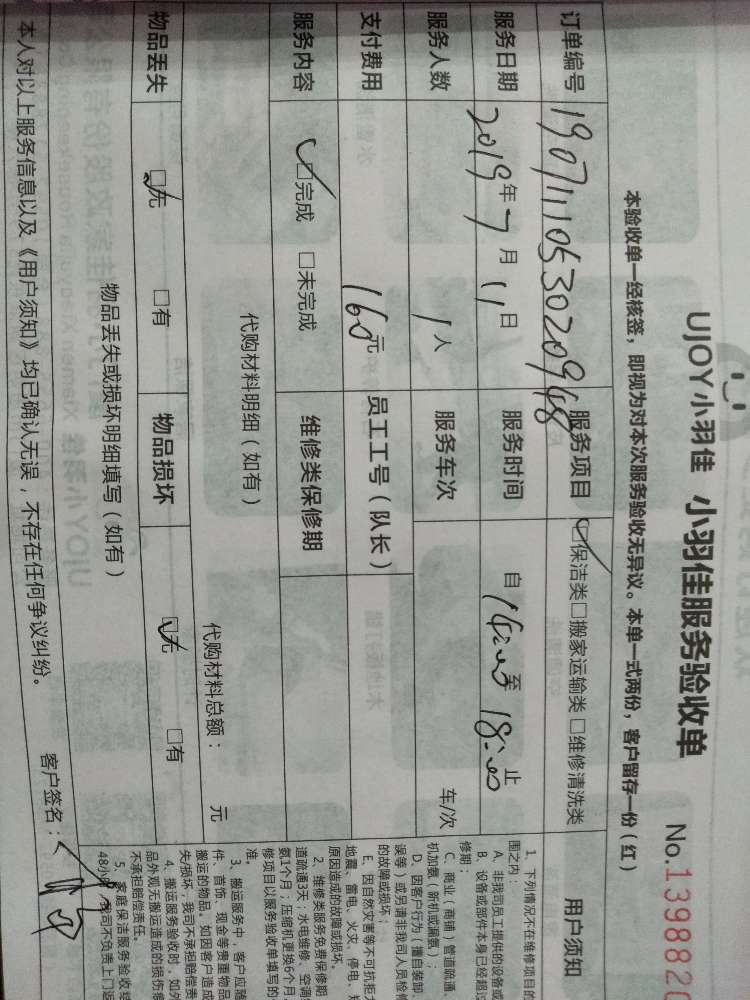 UJOY小羽佳 小羽佳服务验收单 No.139882
本验收单一经核签，即视为对本次服务验收无异议。本单一式两份，客户留存一份（红）
订单编号 1907111053020948 服务项目 ☑保洁类□搬家运输类 □维修清洗类
服务日期 2019年7月11日 服务时间 自14:00至18:00止
服务人数 1人 服务车次 车/次
支付费用 160元 员工工号（队长）
服务内容 ☑完成 □未完成 维修类保修期
代购材料明细（如有）
代购材料总额： 元
物品丢失 ☑无 □有 物品损坏 ☑无 □有
物品丢失或损坏明细填写（如有）
本人对以上服务信息以及《用户须知》均已确认无误，不存在任何争议纠纷。
客户签名：
用户须知
1、下列情况不在维修项目的
围之内：
A、非我司员工提供的设备或
B、设备或部件本身已经超过
修期；
C、商业（商铺）管道疏通、
机加氨（新机或漏氨）；
D、因客户行为（擅自装卸、
误等）或另请非我司人员检修
的故障或损坏；
E、因自然灾害等不可抗拒
地震、雷电、火灾、停电、
原因造成的故障或损坏。
2、维修类服务免费保修期
道疏通3天；水电维修、空调
氨1个月；压缩机更换6个月
修项目以服务验收单填写的
准。
3、搬运服务中，客户应随
件、首饰、现金等贵重物品
搬运的物品。如因客户造成
失/损坏，我司不承担赔偿责
4、搬运服务验收时，如外
品外观无搬运造成的损伤
不承担赔偿责任。
5、家庭保洁服务验收
48小 我司不负责上门返